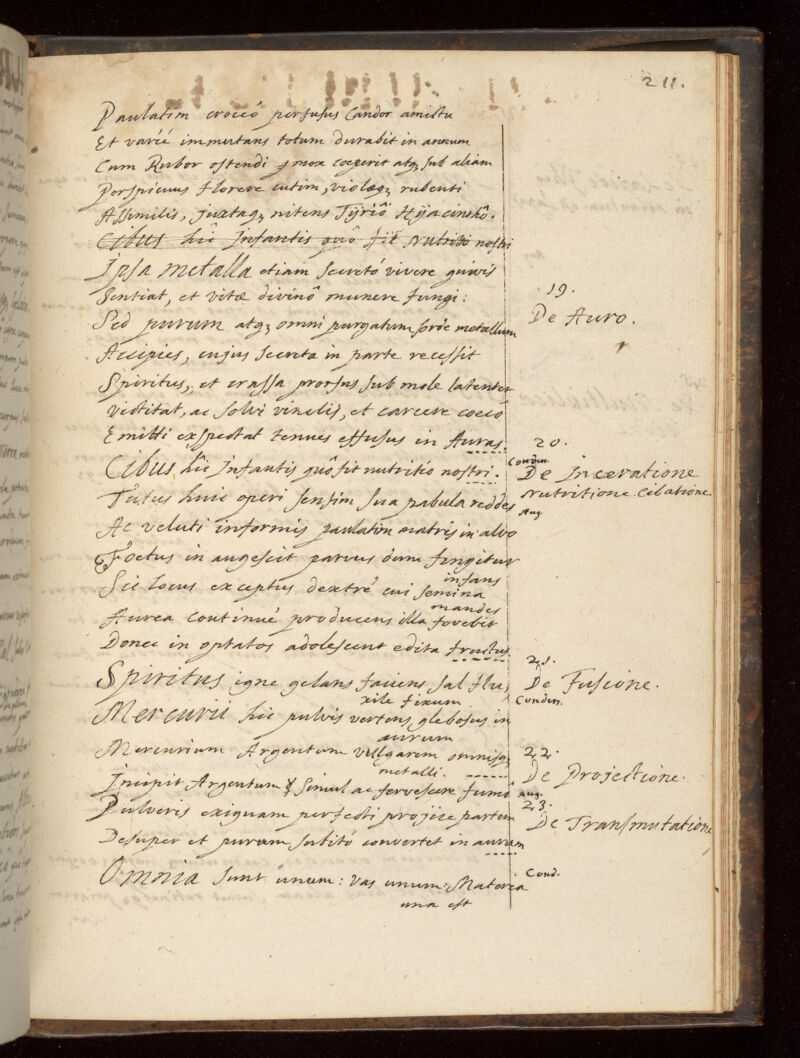 211.
Paulatim croceô perfusus Candor amictu
Et varié immutans totum durabit in annum
Cum Rubor ostendi mox coeperit atqꝫ sub aliam
Perspicuus florere cutim, violaeqꝫ rubenti
Assimilis, juxtaqꝫ nitens Tÿriô Hÿacinthô.
Cibus hîc Infantis quô fit Nutritio nostri
Ipsa metalla etiam Secretó vivere quivis
Sentiat, et vitæ divinô munere fungi:
19.
Sed purum atqꝫ omni purgatum sorde metallum
De Auro.
Accipies, cujus Secreta in parte recessit
Spiritus, et crassa prorsus sub mole latenter
Victitat, ac solvi vinclis, et carcere coecô
Emitti exspectat tenues effusus in Auras.
20.
Cibus hîc Infantis quô fit nutritio nostri.
Condun.
De Inceratione
Nutritione Cibatione
Tutus huic operi sensim sua pabula reddes
Aug.
Ac veluti informis paulatim matris in alvo
Foetus in augescit parvus dum fingitur
infans
Sic locus exceptus dextré cui semina
mandes
Aurea continué producens illa fovebit
Donec in optatos adolescent edita fructus.
21.
Spiritus igne gelans faciens Sal flu,
De Fusione.
xile fixum
Condun.
Mercurii hic pulvis vertens glebosus in
aurum
Mercurium Argentum vulgarem omnisqꝫ
22.
metalli.
De Projectione.
Incipit Argentum Simul ac fervescere fumô
aug.
23.
Pulveris exiguam perfecti projice partem
De Transmutatione
Desuper et purum subitó convertet in aurum
Omnia Sunt unum: Vas unum: Materia
Cond.
una est